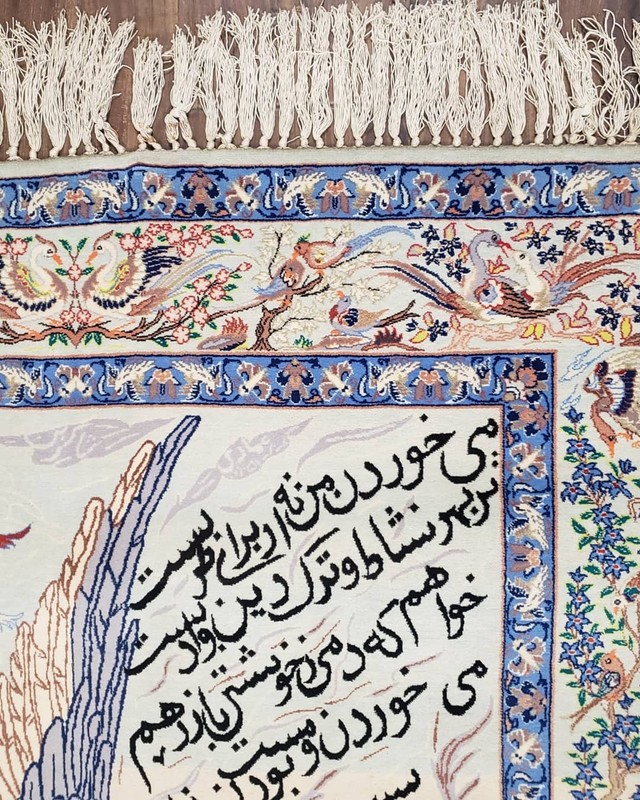 می خوردن من نه از برای طربست
نز بهر نشاط و ترک دین و ادبست
خواهم که دمی ز خویشتن باز رهم
می خوردن و مست بودن